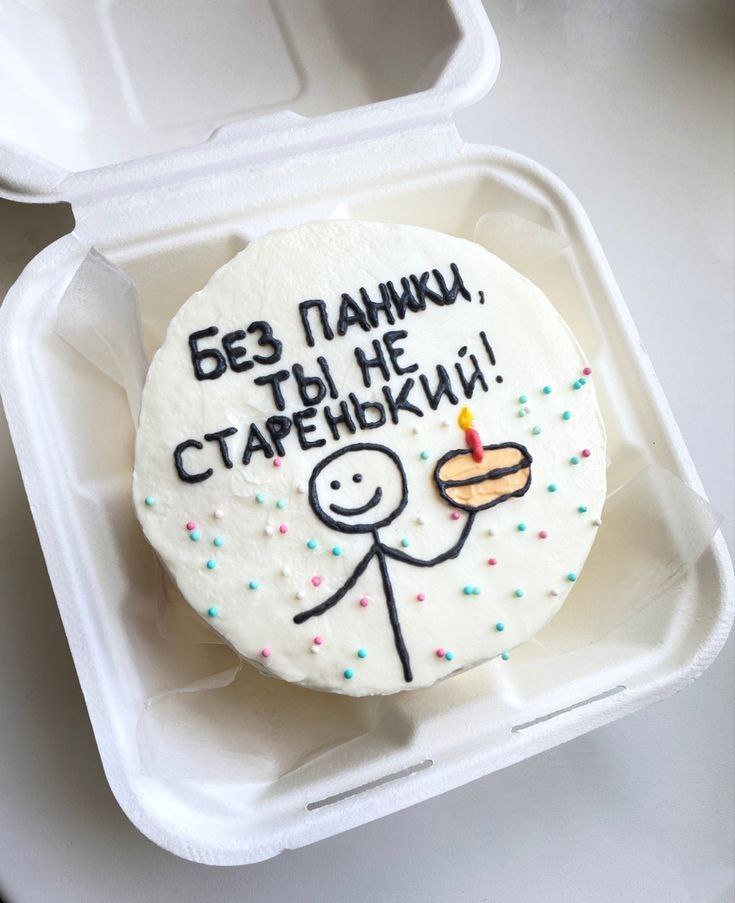 БЕЗ ПАНИКИ,
ТЫ НЕ
СТАРЕНЬКИЙ!